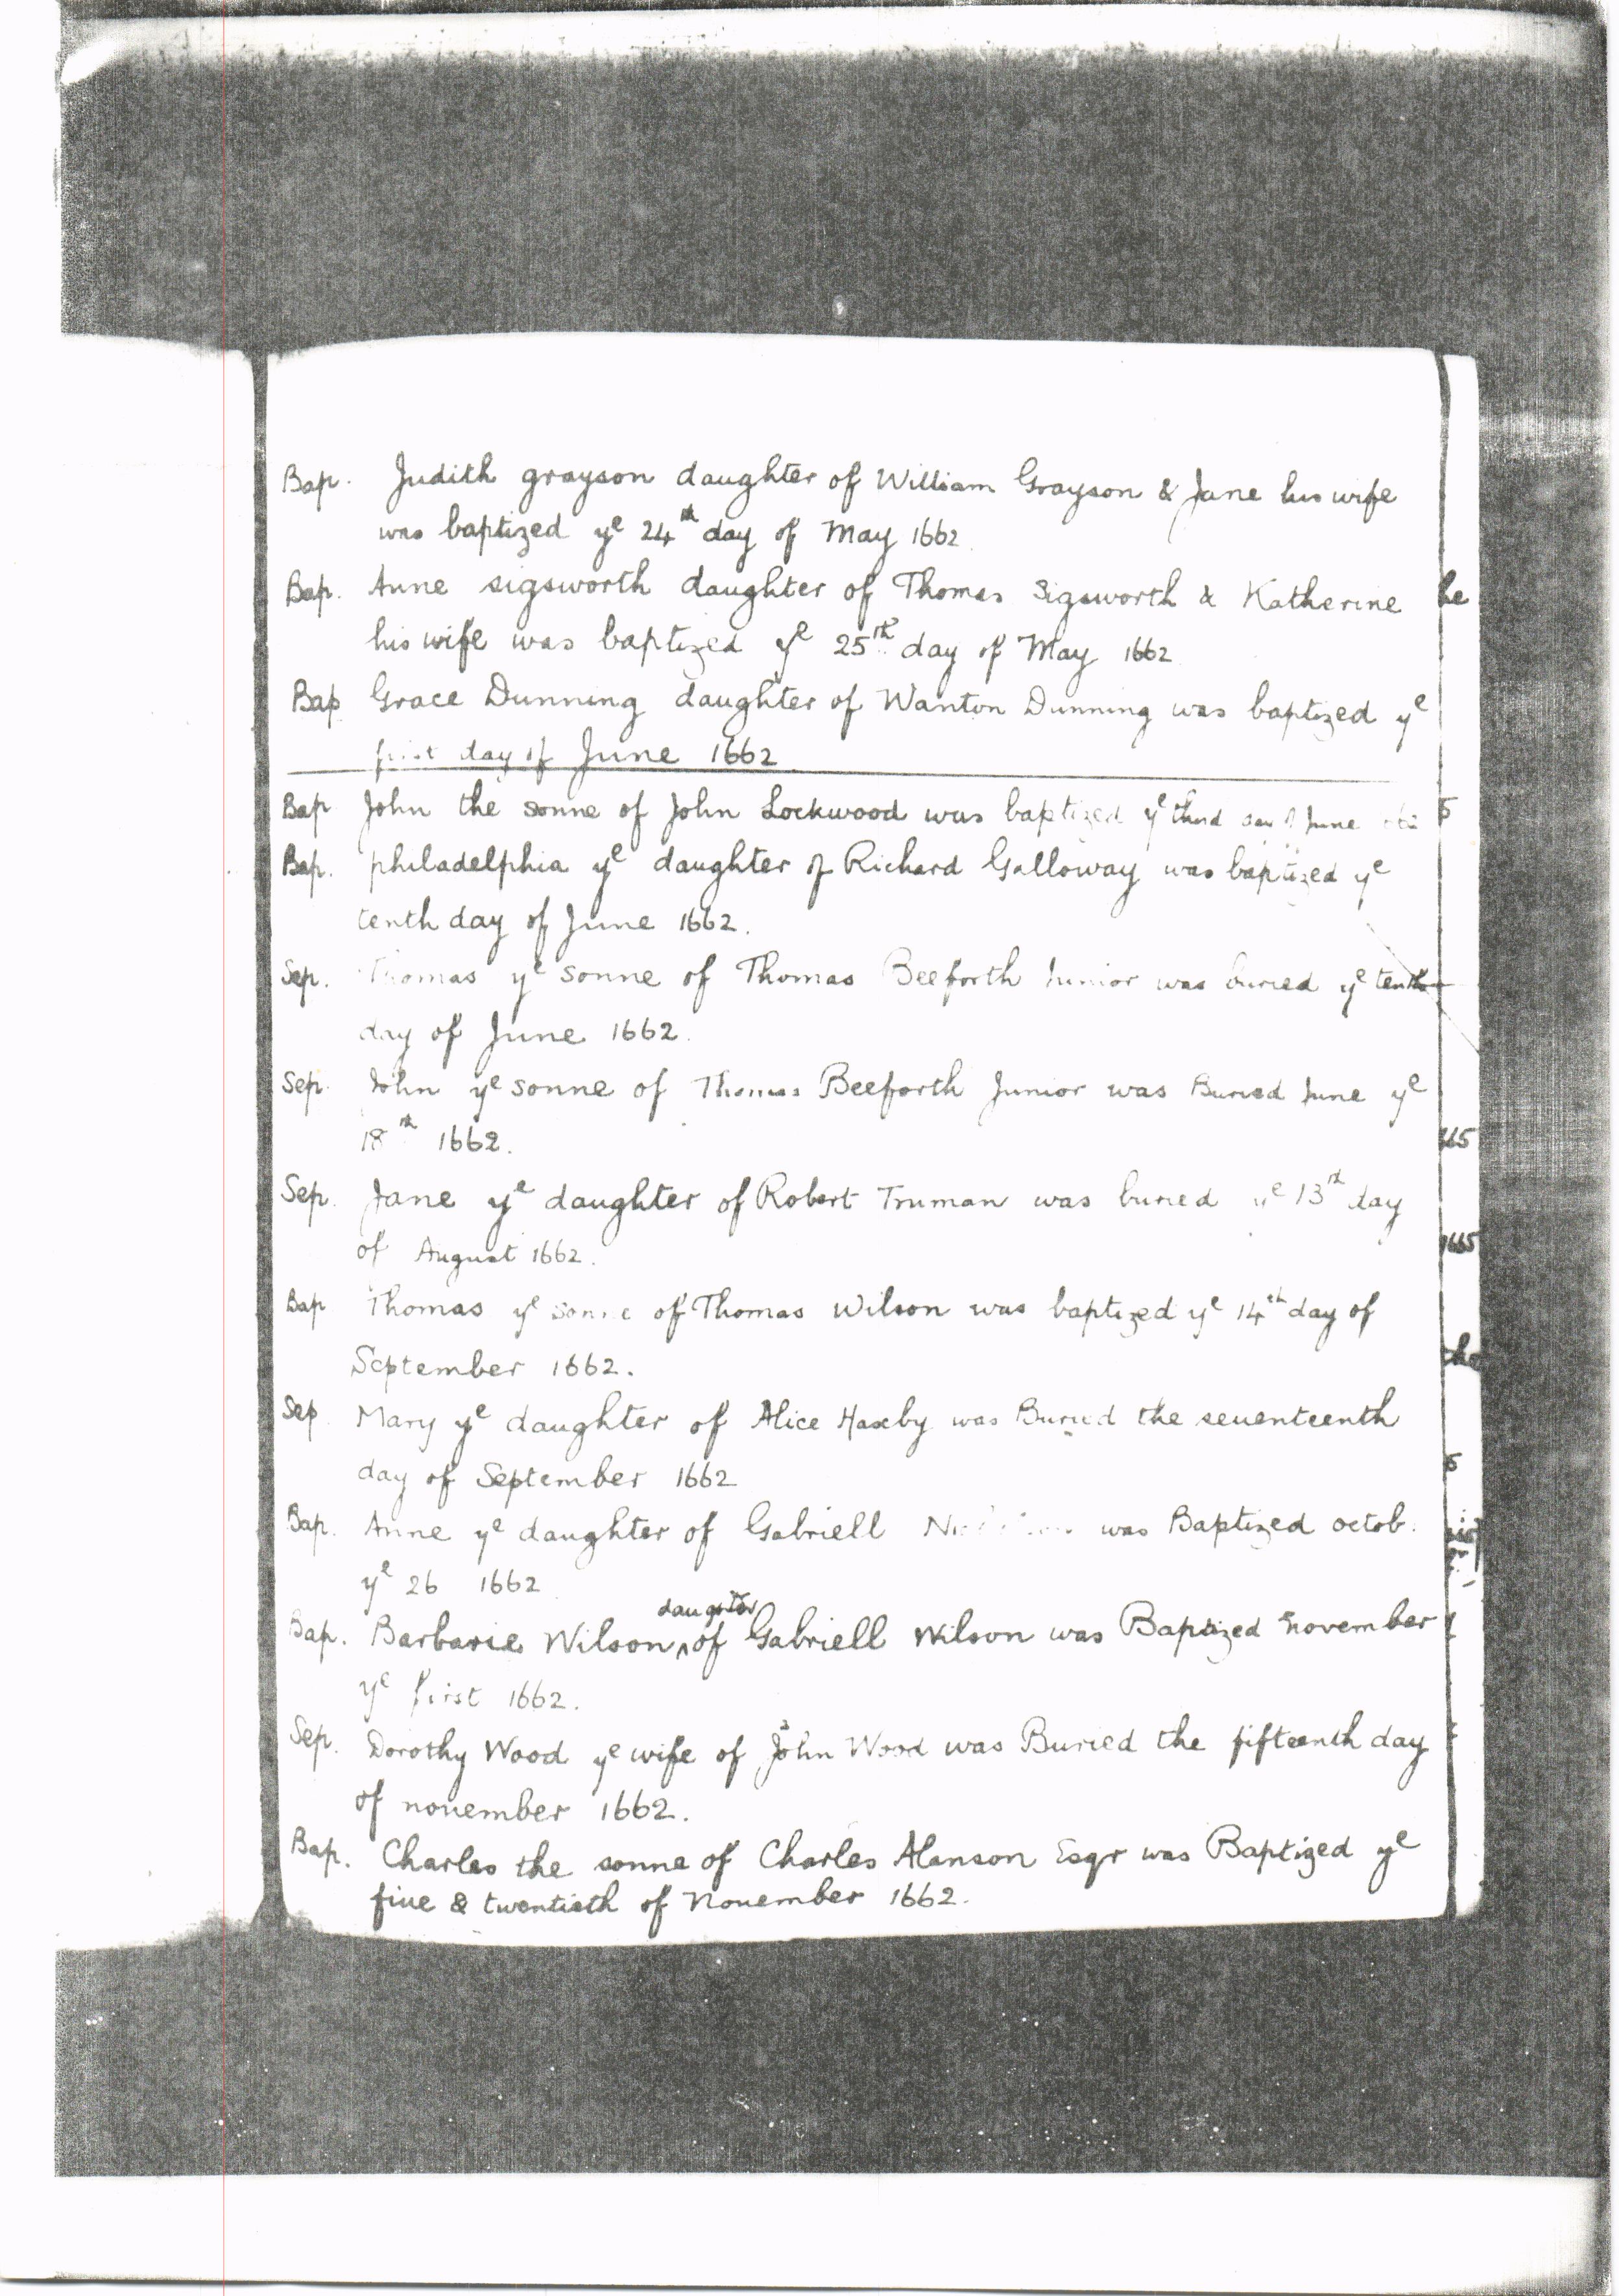 Bap. Judith grayson daughter of William Grayson & Jane his wife
was baptized ye 24th day of May 1662
Bap. Anne sigsworth daughter of Thomas Sigsworth & Katherine
his wife was baptized ye 25th day of May 1662
Bap Grace Dunning daughter of Wanton Dunning was baptized ye
first day of June 1662
Bap John the sonne of John Lockwood was baptized ye third day of June
Bap. philadelphia ye daughter of Richard Galloway was baptized ye
tenth day of June 1662.
Sep. Thomas ye sonne of Thomas Beeforth Junior was buried ye tenth
day of June 1662.
Sep. John ye sonne of Thomas Beeforth Junior was Buried June ye
18th 1662.
Sep. Jane ye daughter of Robert Truman was buried ye 13th day
of August 1662.
Bap Thomas ye sonne of Thomas Wilson was baptized ye 14th day of
September 1662.
Sep. Mary ye daughter of Alice Haxby was Buried the seuenteenth
day of September 1662
Bap. Anne ye daughter of Gabriell was Baptized octob.
ye 26 1662
daughter
Bap. Barbarie Wilson ^ of Gabriell Wilson was Baptized november
ye first 1662.
Sep. Dorothy Wood ye wife of John Wood was Buried the fifteenth day
of nouember 1662.
Bap. Charles the sonne of Charles Alanson Esqr was Baptized ye
fiue & twentieth of Nouember 1662.